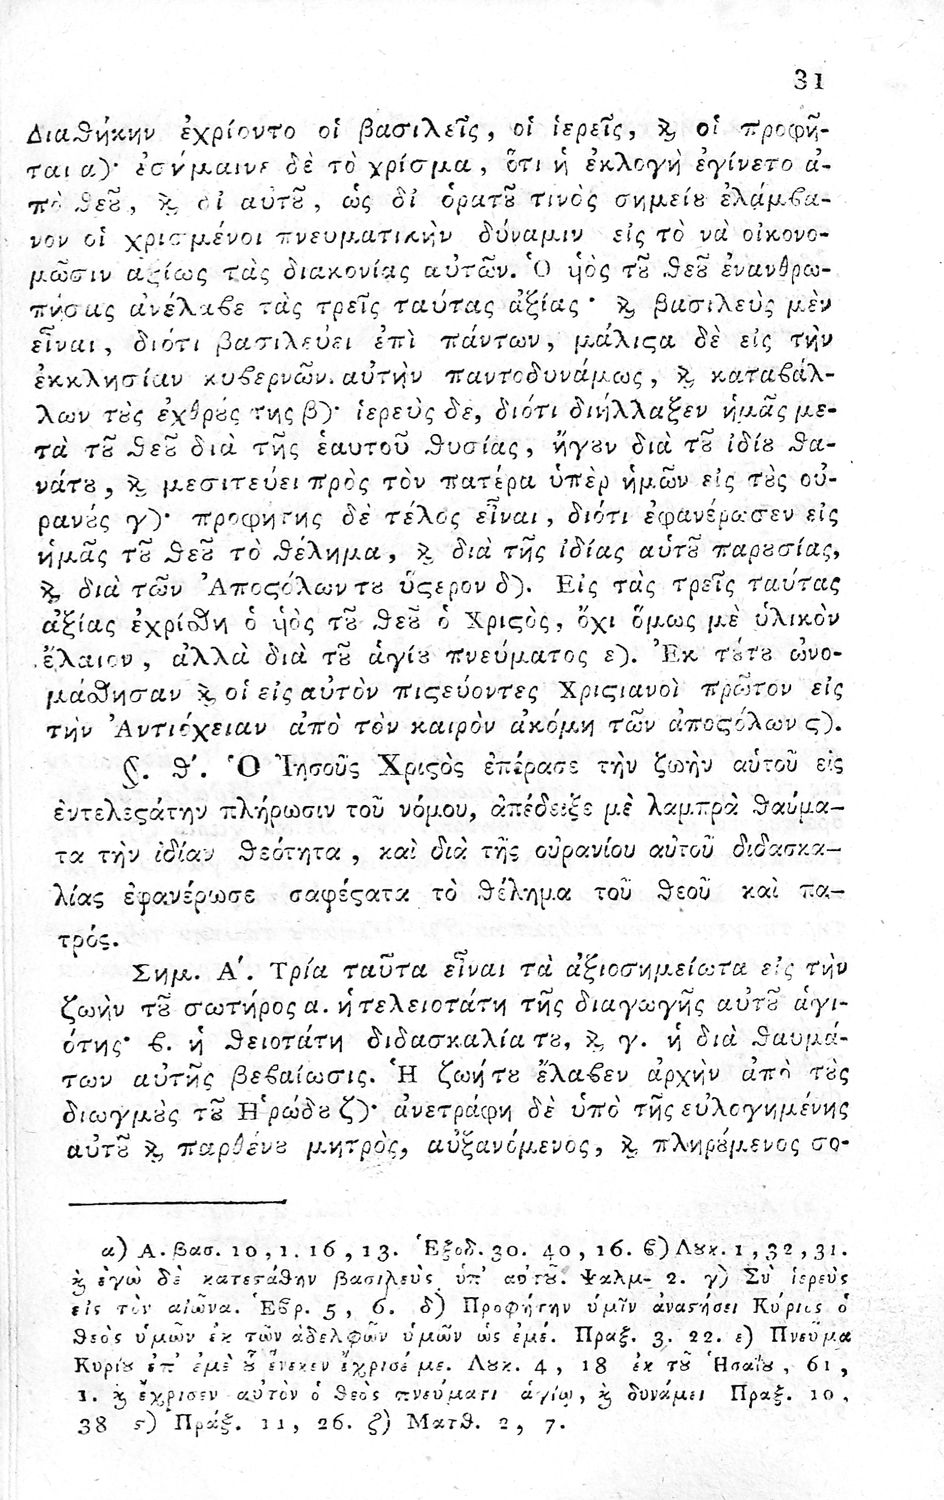 31
Διαθήκην ἐχρίοντο οἱ βασιλεῖς, οἱ ἱερεῖς, ϗ οἱ προφῆ-
ται α)· ἐσήμαινε δὲ τὸ χρίσμα, ὅτι ἡ ἐκλογὴ ἐγίνετο ἀ-
πὸ ϑεȣ͂, ϗ δἰ αὐτȣ͂, ὡς δἰ ὁρατȣ͂ τινὸς σημείȣ ἐλάμϐα-
νον οἱ χρισμένοι πνευματικὴν δύναμιν εἰς τὸ νὰ οἰκονο-
μῶσιν ἀξίως τὰς διακονίας αὐτῶν. Ὁ ὑιὸς τȣ͂ ϑεȣ͂ ἐνανθρω-
πήσας ἀνέλαϐε τὰς τρεῖς ταύτας ἀξίας· ϗ βασιλεὺς μὲν
εἶναι, διότι βασιλεύει ἐπὶ πάντων, μάλιϛα δὲ εἰς τὴν
ἐκκλησίαν κυϐερνῶν αὐτὴν παντοδυνάμως, ϗ καταϐάλ-
λων τȣ̀ς ἐχθρȣ́ς της β)· ἱερεὺς δὲ, διότι διήλλαξεν ἡμᾶς με-
τὰ τȣ͂ ϑεȣ͂ διὰ τῆς ἑαυτοῦ ϑυσίας, ἤγȣν διὰ τȣ͂ ἰδίȣ ϑα-
νάτȣ, ϗ μεσιτεύει πρὸς τὸν πατέρα ὑπὲρ ἡμῶν εἰς τȣ̀ς οὐ-
ρανȣ́ς γ)· προφήτης δὲ τέλος εἶναι, διότι ἐφανέρωσεν εἰς
ἡμᾶς τȣ͂ ϑεȣ͂ τὸ ϑέλημα, ϗ διὰ τῆς ἰδίας αὑτȣ͂ παρȣσίας,
ϗ διὰ τῶν Ἀποϛόλων τȣ ὕϛερον δ). Εἰς τὰς τρεῖς ταύτας
ἀξίας ἐχρίσθη ὁ ὑιὸς τȣ͂ ϑεȣ͂ ὁ Χριϛὸς, ὄχι ὅμως μὲ ὑλικὸν
ἔλαιον, ἀλλὰ διὰ τȣ͂ ἁγίȣ πνεύματος ε). Ἐκ τȣ́τȣ ὠνο-
μάσθησαν ϗ οἱ εἰς αὐτὸν πιϛεύοντες Χριϛιανοὶ πρῶτον εἰς
τὴν Ἀντιόχειαν ἀπὸ τὸν καιρὸν ἀκόμη τῶν ἀποϛόλων ϛ).
§. ϑ'. Ὁ Ἰησοῦς Χριϛὸς ἐπέρασε τὴν ζωὴν αὑτοῦ εἰς
ἐντελεϛάτην πλήρωσιν τοῦ νόμου, ἀπέδειξε μὲ λαμπρὰ ϑαύμα-
τα τὴν ἰδίαν ϑεότητα, καὶ διὰ τῆς οὐρανίου αὑτοῦ διδασκα-
λίας ἐφανέρωσε σαφέϛατα τὸ ϑέλημα τοῦ ϑεοῦ καὶ πα-
τρός.
Σημ. Α'. Τρία ταῦτα εἶναι τὰ ἀξιοσημείωτα εἰς τὴν
ζωὴν τȣ͂ σωτήρος α. ἡ τελειοτάτη τῆς διαγωγῆς αὐτȣ͂ ἁγι-
ότης· ϐ. ἡ ϑειοτάτη διδασκαλία τȣ, ϗ γ. ἡ διὰ ϑαυμά-
των αὐτῆς βεϐαίωσις. Ἡ ζωή τȣ ἔλαϐεν ἀρχὴν ἀπὸ τȣ̀ς
διωγμȣ̀ς τȣ͂ Ἡρώδȣ ζ)· ἀνετράφη δὲ ὑπὸ τῆς εὐλογημένης
αὐτȣ͂ ϗ παρθένȣ μητρὸς, αὐξανόμενος, ϗ πληρȣ́μενος σο-
α) Α. βασ. 10, 1. 16, 13. Ἐξοδ. 30. 40, 16. ϐ) Λȣκ. 1, 32, 31.
ϗ ἐγὼ δὲ κατεϛάθην βασιλεὺς ὑπ' αὐτȣ͂. Ψαλμ- 2. γ) Σὺ ἱερεὺς
εἰς τὸν αἰῶνα. Ἑϐρ. 5, 6. δ) Προφήτην ὑμῖν ἀναϛήσει Κύριος ὁ
ϑεὸς ὑμῶν ἐκ τῶν ἀδελφῶν ὑμῶν ὡς ἐμέ. Πραξ. 3. 22. ε) Πνεῦμα
Κυρίȣ ἐπ' ἐμὲ ȣ̔͂ ἕνεκεν ἔχρισέ με. Λȣκ. 4, 18 ἐκ τȣ͂ Ἡσαΐȣ, 61,
1. ϗ ἔχρισεν αὐτὸν ὁ ϑεὸς πνεύματι ἁγίῳ, ϗ δυνάμει Πραξ. 10,
38 ϛ) Πράξ. 11, 26. ζ) Ματϑ. 2, 7.